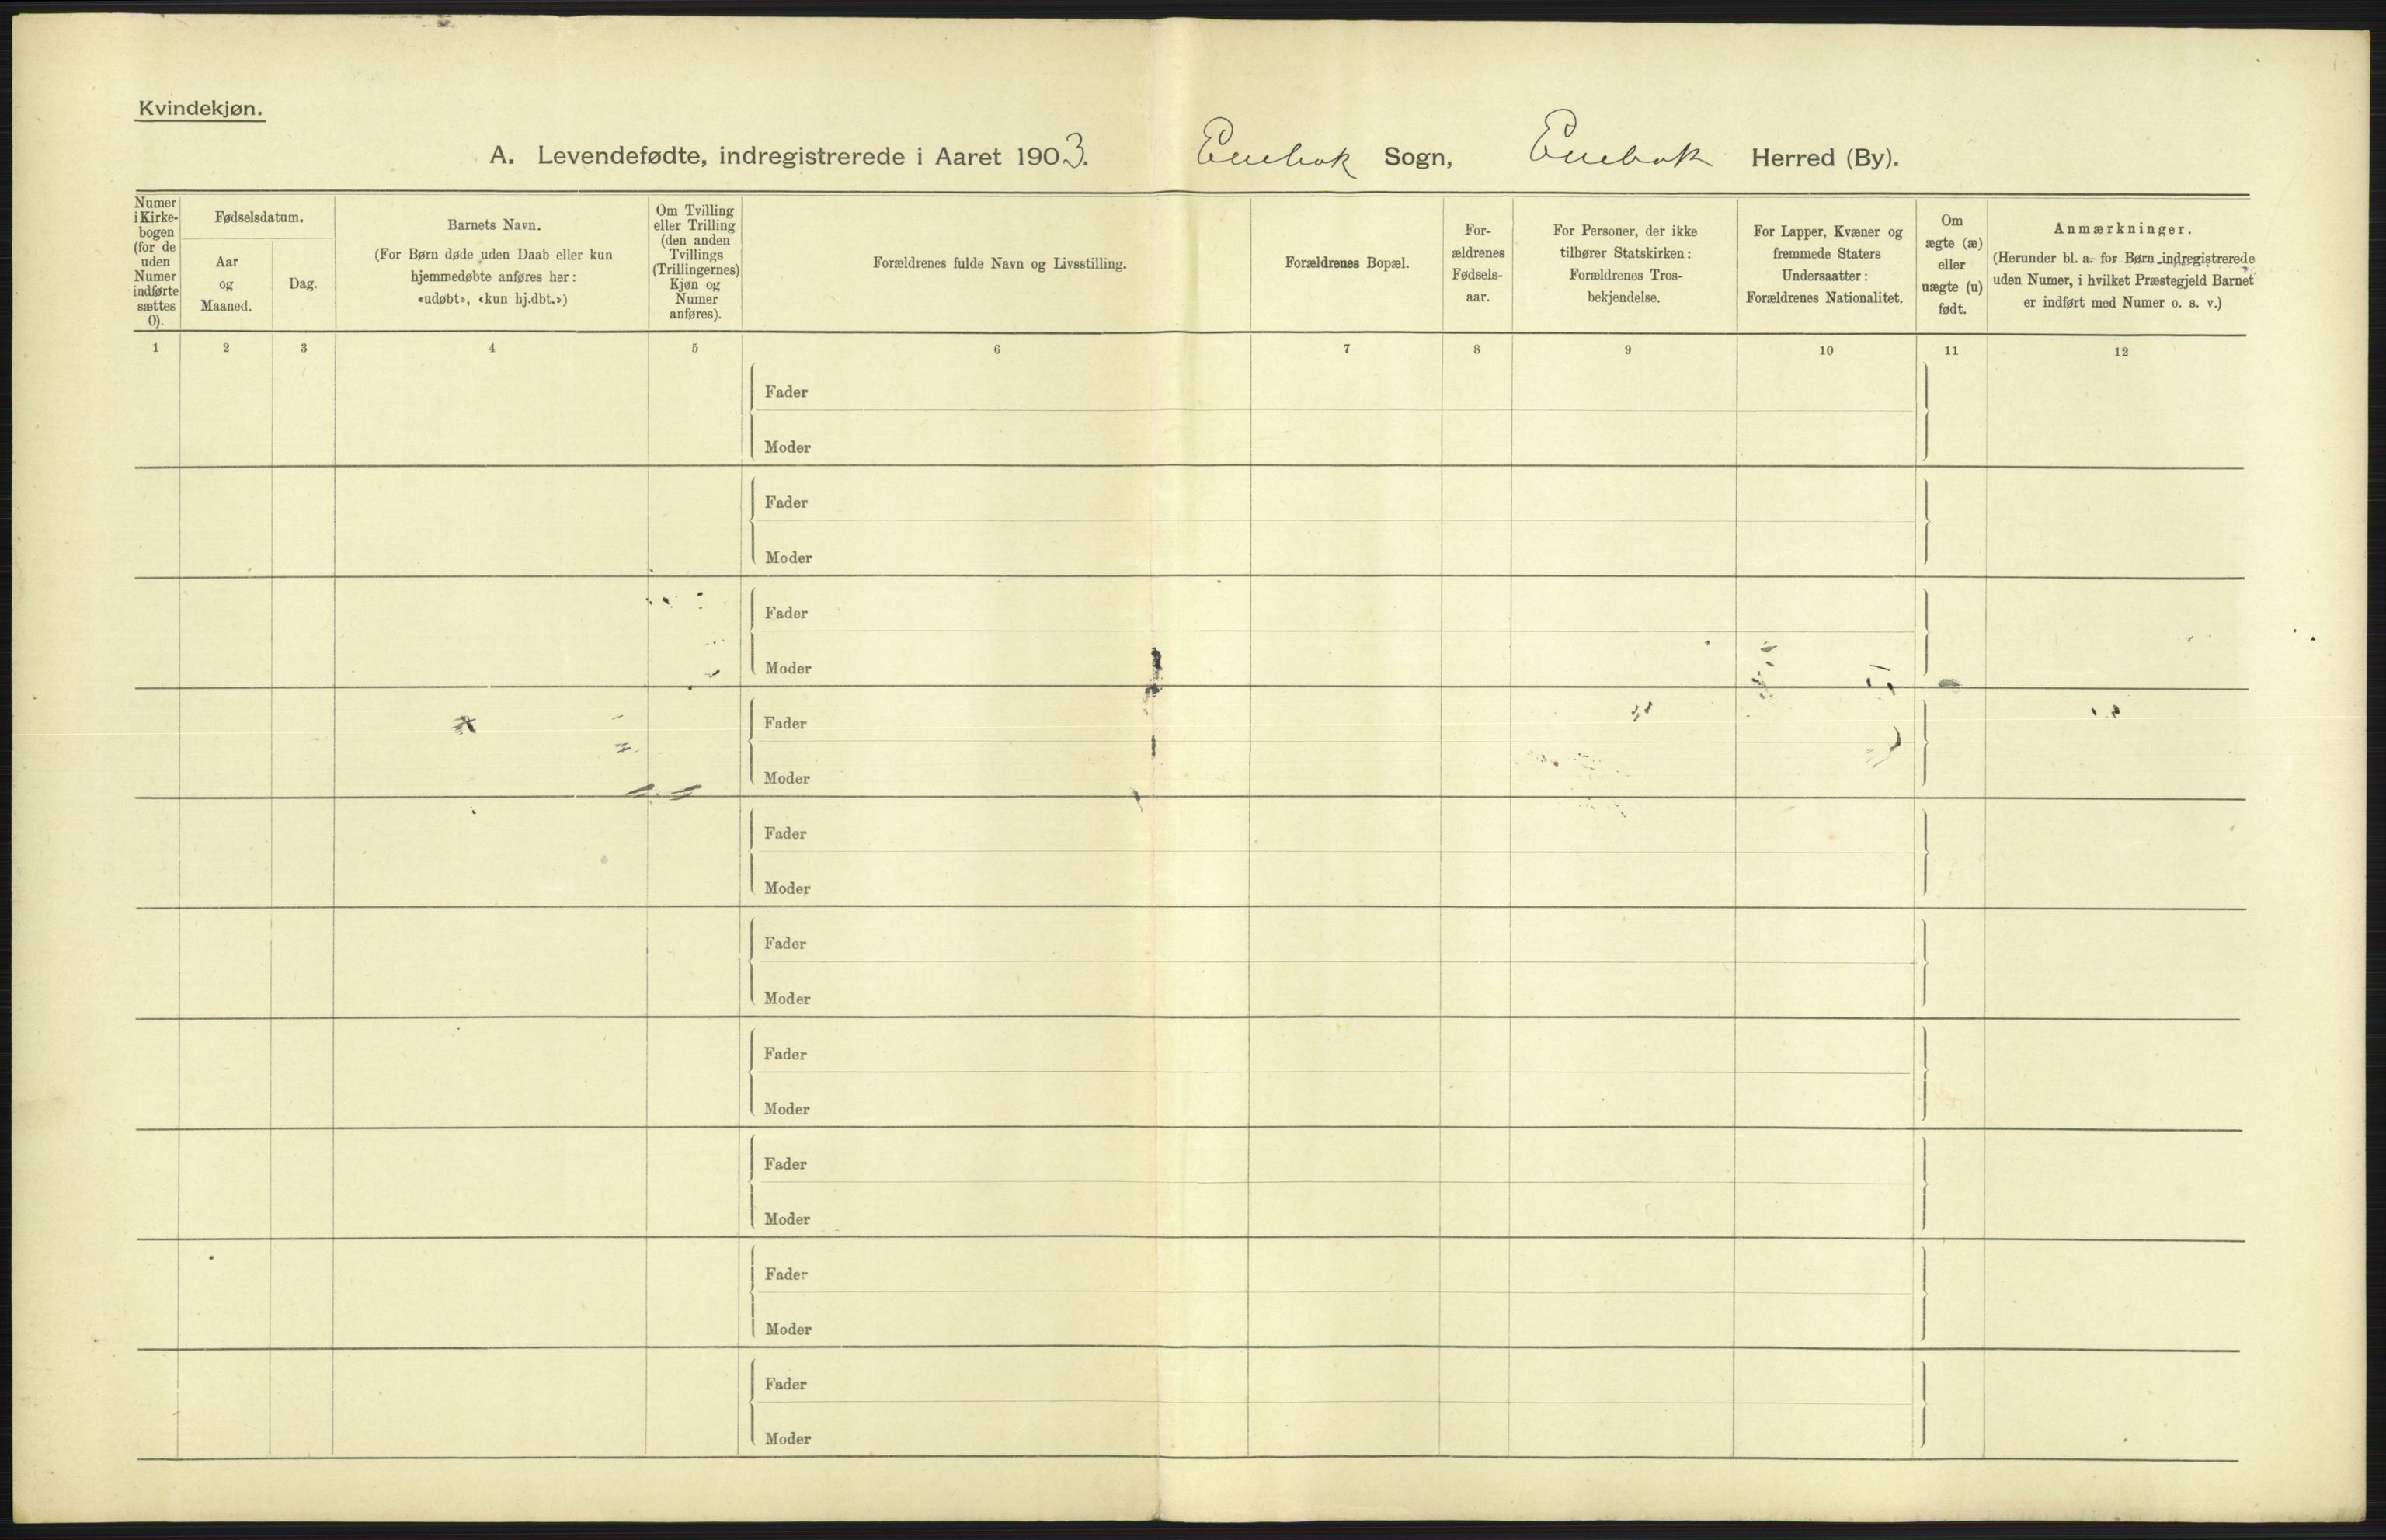 Kvindekjøn.
A. Levendefødte, indregistrerede i Aaret 1903. Enebak Sogn, Enebak Herred (By).
Numer
i Kirke-
bogen
(for de
uden
Numer
indførte
sættes
0).
Fødselsdatum.
Aar
og
Maaned.
Dag.
Barnets Navn.
(For Børn døde uden Daab eller kun
hjemmedøbte anføres her:
«udøbt», «kun hj.dbt.»)
Om Tvilling
eller Trilling
(den anden
Tvillings
(Trillingernes)
Kjøn og
Numer
anføres).
Forældrenes fulde Navn og Livsstilling.
Forældrenes Bopæl.
For-
ældrenes
Fødsels-
aar.
For Personer, der ikke
tilhører Statskirken:
Forældrenes Tros-
bekjendelse.
For Lapper, Kvæner og
fremmede Staters
Undersaatter:
Forældrenes Nationalitet.
Om
ægte (æ)
eller
uægte (u)
født.
Anmærkninger.
(Herunder bl. a. for Børn indregistrerede
uden Numer, i hvilket Præstegjeld Barnet
er indført med Numer o. s. v.)
1 2 3 4 5 6 7 8 9 10 11 12
Fader
Moder
Fader
Moder
Fader
Moder
Fader
Moder
Fader
Moder
Fader
Moder
Fader
Moder
Fader
Moder
Fader
Moder
Fader
Moder